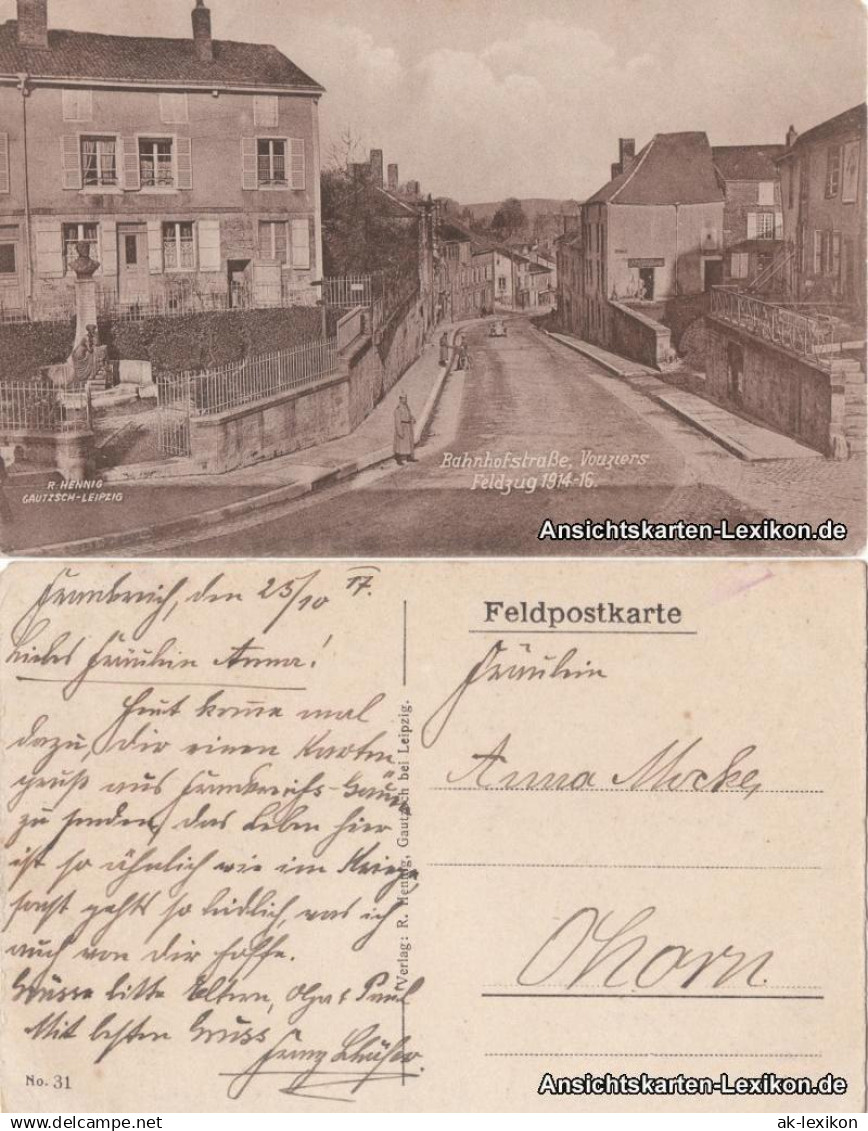 Bahnhofstraße, Vouziers
Feldzug 1914-16.
R. HENNIG
GAUTZSCH-LEIPZIG
Ansichtskarten-Lexikon.de
Frankreich, den 25/10 17.
Liebes Fräulein Anna!
Heut komme mal
dazu, Dir einen Karten
gruß aus Frankreichs-Gauen
zu senden, das Leben hier
ist so ähnlich wie im Kriege,
sonst gehts so leidlich, was ich
auch von Dir hoffe.
Grüsse bitte Eltern, Olga & Paul
Mit besten Gruss
No. 31
Verlag: R. Hennig, Gautzsch bei Leipzig.
Feldpostkarte
Fräulein
Anna Mocke,
Ohorn
Ansichtskarten-Lexikon.de
ak-lexikon